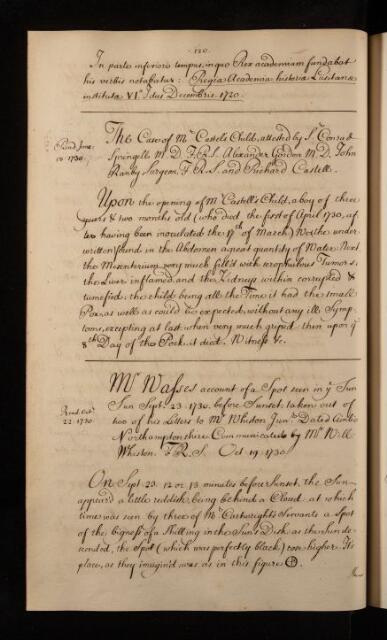 120
In parte inferiori tempus, in quo Rex academiam fundabat
his verbis notabatur: Regia Academia historiæ Lusitanæ
instituta VI.ᵗᵒ Idus Decembris 1720.
The Case of Mʳ Castels Child, attested by Sʳ Conrad
Read June
10 1730.
Sprengell M.D. F.R.S. Alexander Gordon M.D. John
Ranby Surgeon, F.R.S. and Richard Castell.
Upon the opening of Mʳ Castell's Child, a boy of three
years & two months old (who died the first of April 1730, af
ter having been inoculated the 17ᵗʰ of March) We the under
written found in the Abdomen a great quantity of Water. Next
the Mesenterium very much fill'd with scrophulous Tumors,
the Liver inflamed, and the Kidneys within corrupted &
tumefied. the child being all the Time it had the small
Pox, as well as could be expected, without any ill Symp-
toms, excepting at last when very much griped, then upon yᵉ
8ᵗʰ Day of the Pock it died. Witness &c.
Mʳ Wasses account of a Spot seen in yᵉ Sun
Read Octʳ
22 1730
Sun Sept. 23. 1730. before Sunset, taken out of
two of his Letters to Mʳ Whiston Junʳ Dated
Northamptonshire Communicated by Mʳ Will.
Whiston. F.R.S. Oct 19. 1730
On Sept 23. 12 or 13 minutes before Sunset, the Sun
appear'd a little reddish, being behind a Cloud. at which
time was seen by three of Mʳ Cartwright's Servants a Spot
of the bigness of a Shilling in the Sun's Disk. as the Sun de-
scended, the Spot (which was perfectly black) rose higher. Its
place, as they imagin'd was as in this figure